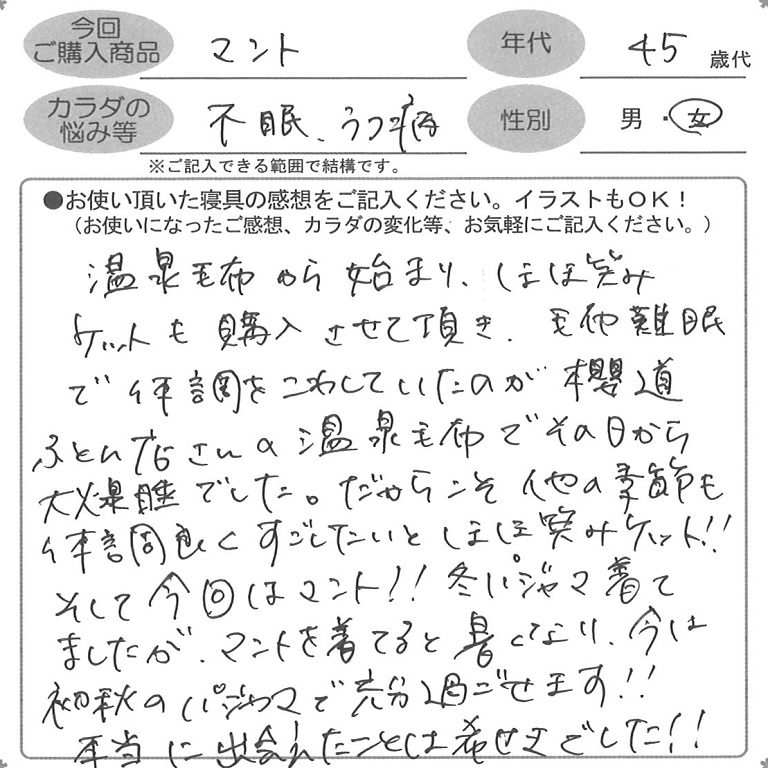 今回
ご購入商品
マント
年代
45 歳代
カラダの
悩み等
不眠、うつ病
性別
男・女
※ご記入できる範囲で結構です。
●お使い頂いた寝具の感想をご記入ください。イラストもOK！
（お使いになったご感想、カラダの変化等、お気軽にご記入ください。）
温泉毛布から始まり、ほほ笑み
ケットも購入させて頂き、毛布難眠
で体調をこわしていたのが櫻道
ふとん店さんの温泉毛布でその日から
大爆睡でした。だからこそ他の季節も
体調良くすごしたいとほほ笑みケット!!
そして今回はマント!! 冬パジャマ着て
ましたが、マントを着てると暑くなり、今は
初秋のパジャマで充分過ごせます!!
本当に出会えたことは幸せまでした!!